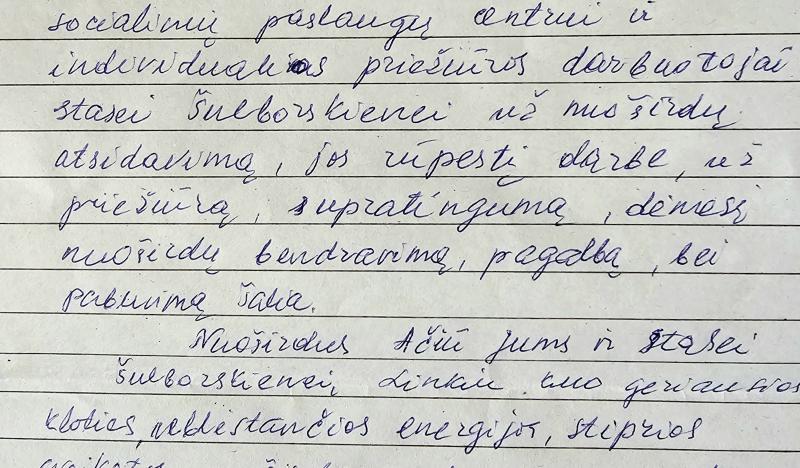 socialinių paslaugų centrui ir
individualios priežiūros darbuotojai
stasei Šulborskienei už nuoširdų
atsidavimą, jos rūpestį darbe, už
priežiūrą, supratingumą, dėmesį
nuoširdų bendravimą, pagalbą, bei
pabuvimą šalia.
Nuoširdus Ačiū jums ir stasei
Šulborskienei, Linkiu kuo geriausios
kloties, neblėstančios energijos, stiprios